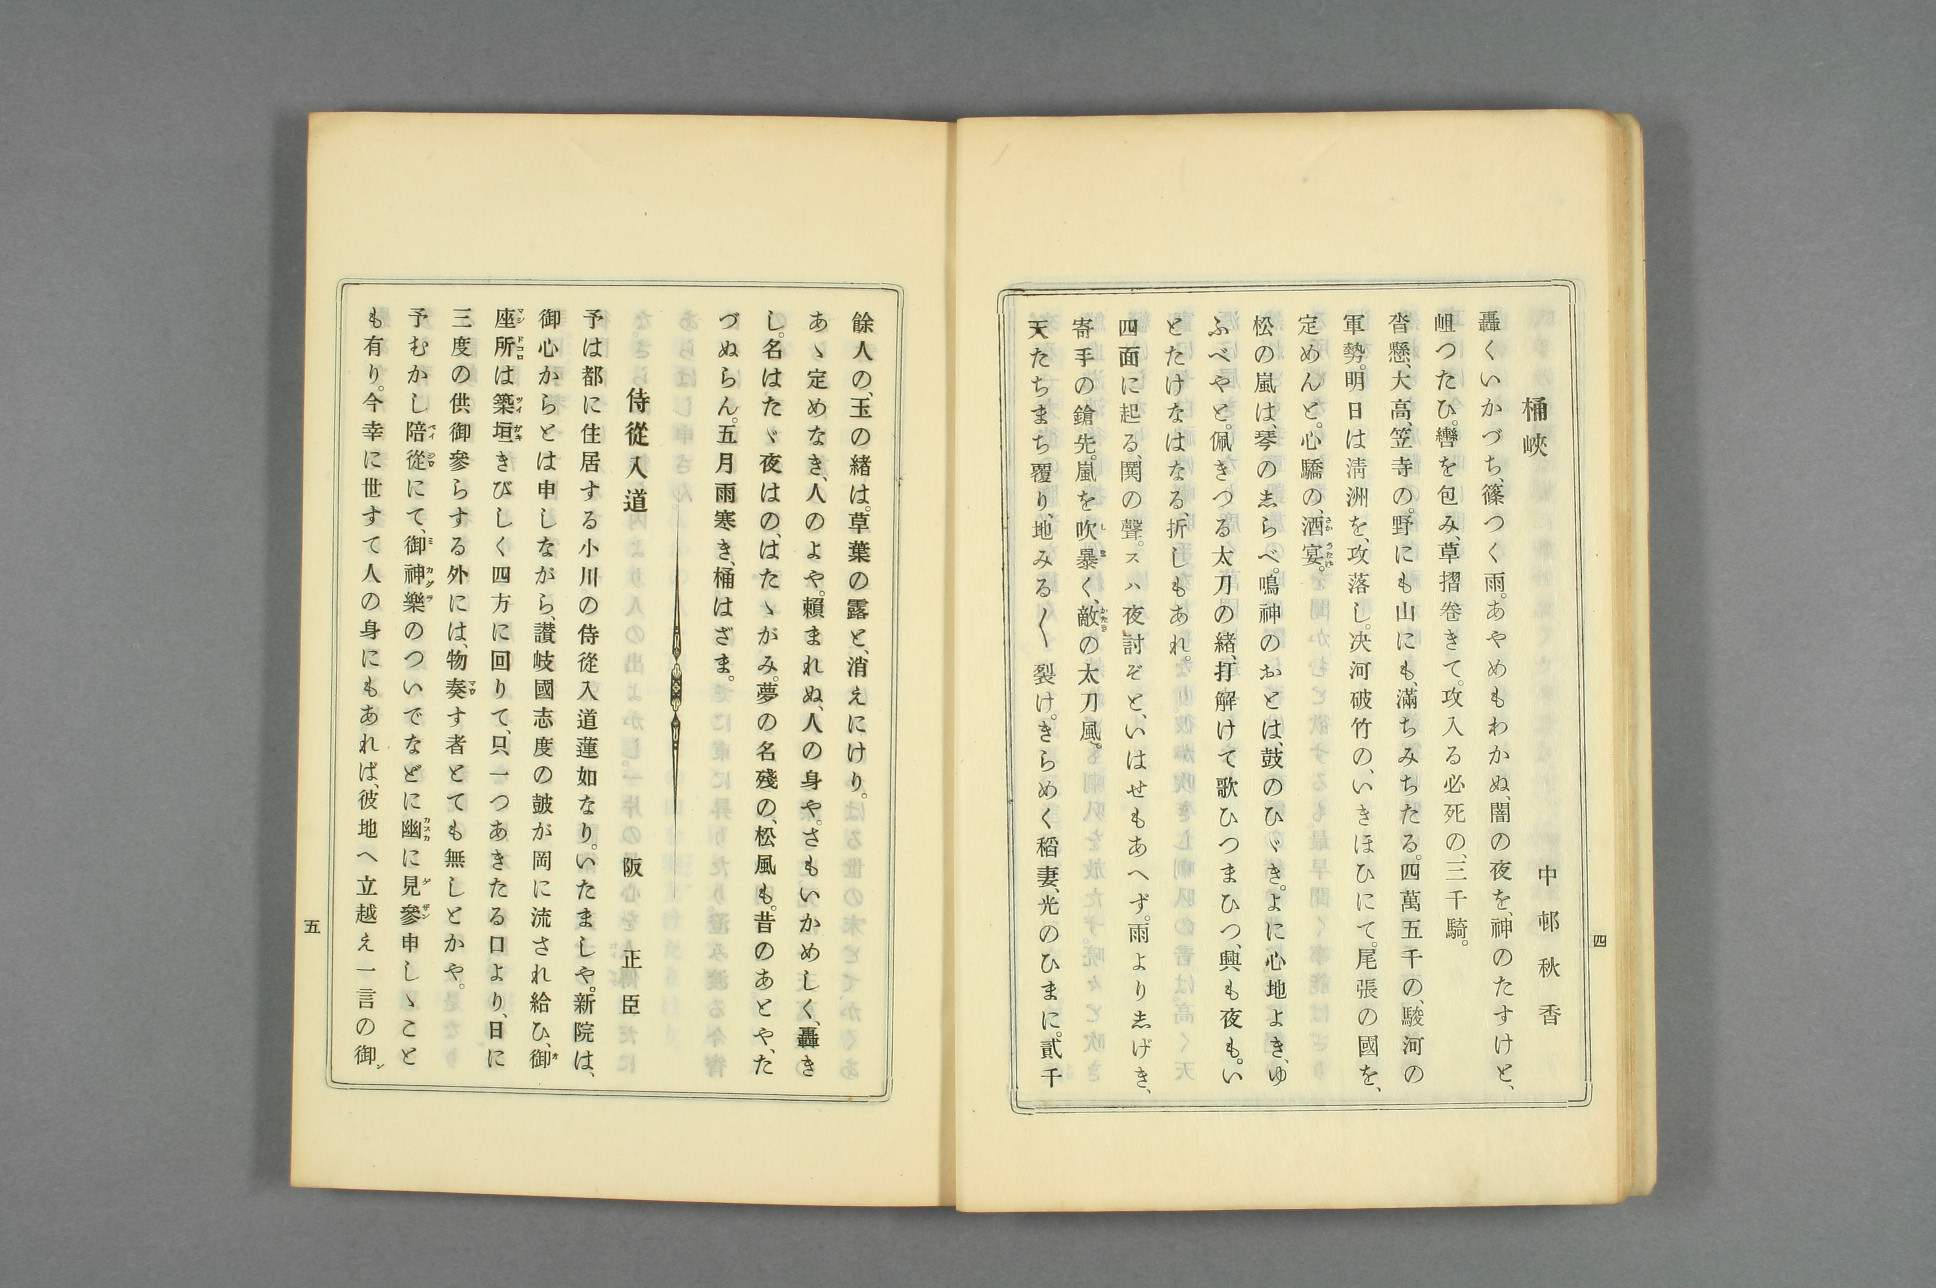 桶峽　中邨秋香
轟くいかづち、篠つく雨。あやめもわかぬ、闇の夜を、神のたすけと、
岨つたひ。轡を包み、草摺卷きて。攻入る必死の、三千騎。
沓懸、大高、笠寺の。野にも山にも、滿ちみちたる。四萬五千の、駿河の
軍勢。明日は淸洲を、攻落し。决河破竹の、いきほひにて。尾張の國を、
定めんと。心驕の、酒宴。
松の嵐は、琴の志らべ。鳴神のおとは、鼓のひゞき。よに心地よき、ゆ
ふべやと。佩きつる太刀の緒、打解けて歌ひつまひつ、興も夜も。い
とたけなはなる、折しもあれ。
四面に起る、鬨の聲。スハ夜討ぞと、いはせもあへず。雨より志げき、
寄手の鎗先。嵐を吹暴く、敵の太刀風。
天たちまち覆り、地みる〱裂け。きらめく稻妻、光のひまに。貳千
四
餘人の、玉の緒は。草葉の露と、消えにけり。
あゝ定めなき、人のよや。賴まれぬ、人の身や。さもいかめしく、轟き
し。名はたゞ夜はの、はたゝがみ。夢の名殘の、松風も。昔のあとや、た
づぬらん。五月雨寒き、桶はざま。
侍從入道　阪正臣
予は都に住居する小川の侍從入道蓮如なり。いたましや。新院は、
御心からとは申しながら、讃岐國志度の皷が岡に流され給ひ、御
座所は築垣きびしく四方に回りて、只一つあきたる口より、日に
三度の供御參らする外には、物奏す者とても無しとかや。
予むかし陪從にて、御神樂のついでなどに幽に見參申しゝこと
も有り。今幸に世すて人の身にもあれば、彼地へ立越え一言の御
五